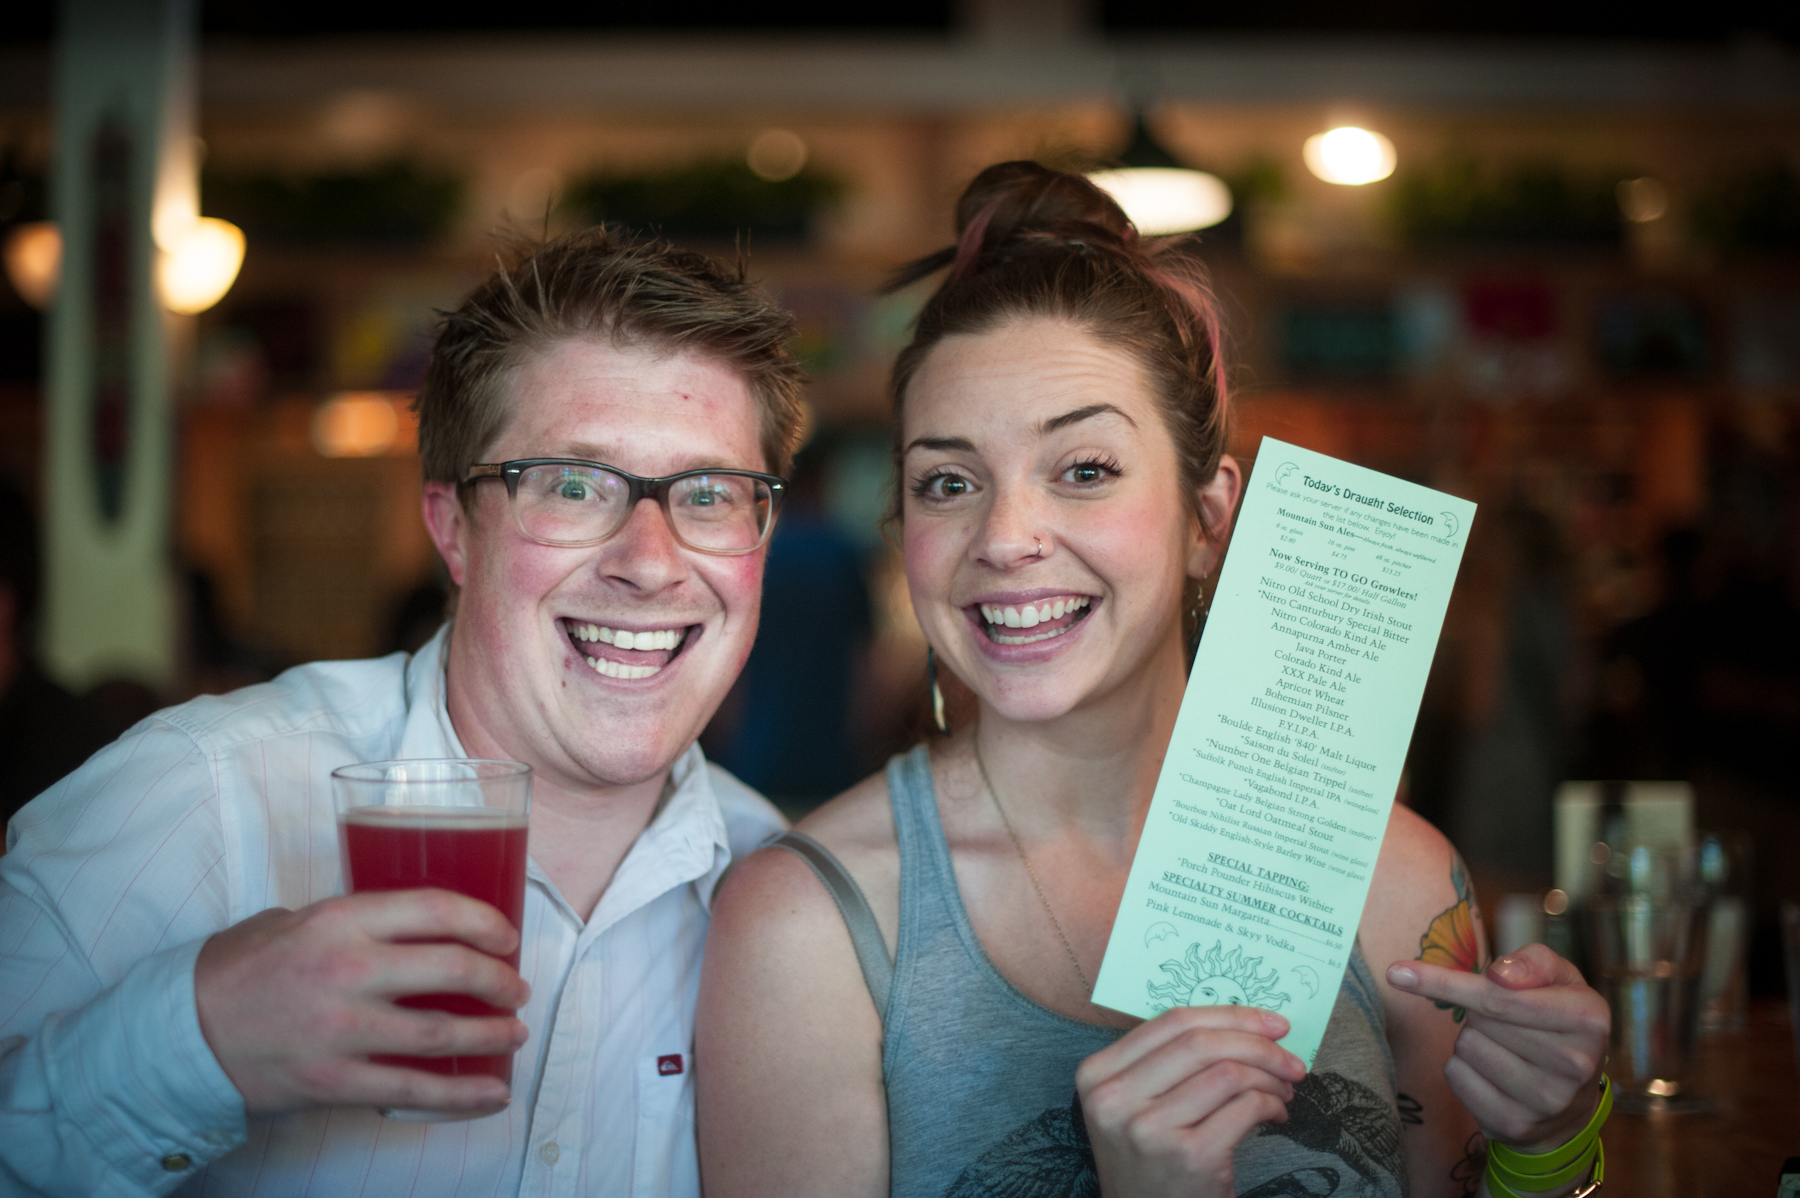 Today's Draught Selection
Please ask your server if any changes have been made in
the list below. Enjoy!
Mountain Sun Ales—always fresh, always unfiltered
8 oz. glass 16 oz. pint 48 oz. pitcher
$2.80 $4.75 $13.25
Now Serving TO GO Growlers!
$9.00/ Quart or $17.00/ Half Gallon
ask your server for details
Nitro Old School Dry Irish Stout
*Nitro Canturbury Special Bitter
Nitro Colorado Kind Ale
Annapurna Amber Ale
Java Porter
Colorado Kind Ale
XXX Pale Ale
Apricot Wheat
Bohemian Pilsner
Illusion Dweller I.P.A.
F.Y.I.P.A.
*Boulde English '840' Malt Liquor
*Saison du Soleil (snifter)
*Number One Belgian Trippel (snifter)
*Suffolk Punch English Imperial IPA (wineglass)
*Vagabond I.P.A.
*Champagne Lady Belgian Strong Golden (snifter)*
*Oat Lord Oatmeal Stout
*Bourbon Nihilist Russian Imperial Stout (wine glass)
*Old Skiddy English-Style Barley Wine (wine glass)
SPECIAL TAPPING:
*Porch Pounder Hibiscus Witbier
SPECIALTY SUMMER COCKTAILS
Mountain Sun Margarita....................$6.50
Pink Lemonade & Skyy Vodka